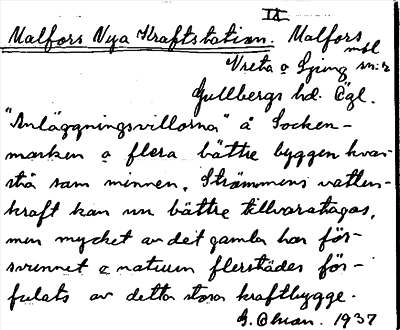 IX
Malfors Nya Kraftstation. Malfors
msl
Vreta o Ljung sn:r
Gullbergs hd. Ögl.
"Anläggningsvillorna" å Socken-
marken o flera bättre byggen kvar
stå som minnen. Strömmens vatten-
kraft kan nu bättre tillvaratagas,
men mycket av det gamla har för-
svunnit o naturen flerstädes för-
fulats av detta stora kraftbygge.
G. Ohson. 1937